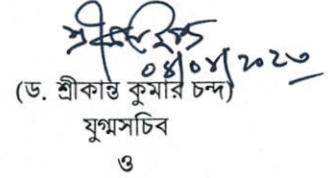 ০৪/০৪/২০২৩
(ড. শ্রীকান্ত কুমার চন্দ)
যুগ্মসচিব
ও